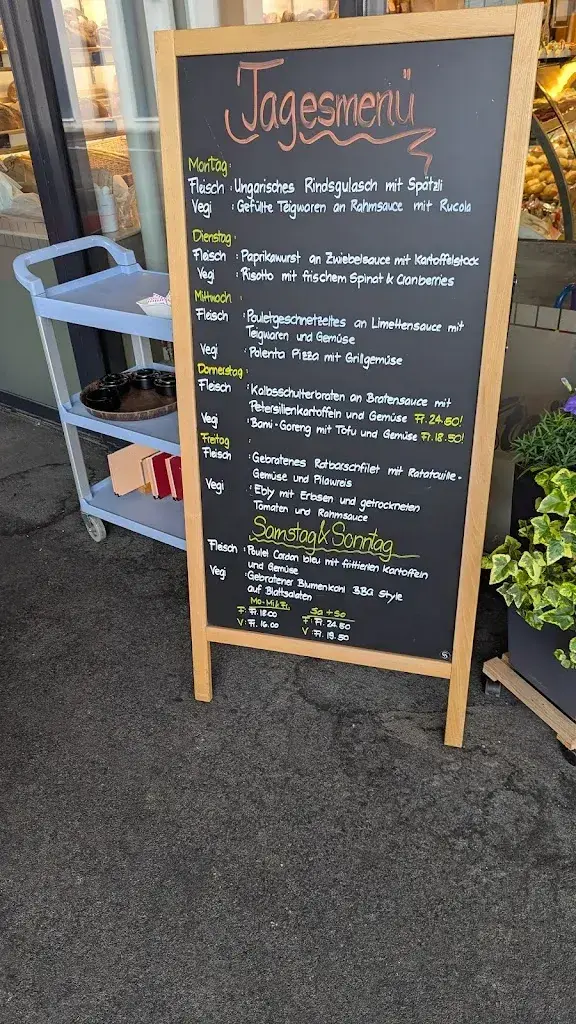 Tagesmenü
Montag:
Fleisch : Ungarisches Rindsgulasch mit Spätzli
Vegi : Gefüllte Teigwaren an Rahmsauce mit Rucola
Dienstag:
Fleisch : Paprikawurst an Zwiebelsauce mit Kartoffelstock
Vegi : Risotto mit frischem Spinat & Cranberries
Mittwoch :
Fleisch : Pouletgeschnetzeltes an Limettensauce mit
Teigwaren und Gemüse
Vegi : Polenta Pizza mit Grillgemüse
Donnerstag :
Fleisch : Kalbsschulterbraten an Bratensauce mit
Petersilienkartoffeln und Gemüse Fr. 24.50!
Vegi : Bami-Goreng mit Tofu und Gemüse Fr. 18.50!
Freitag :
Fleisch : Gebratenes Rotbarschfilet mit Ratatouille-
Gemüse und Pilawreis
Vegi : Ebly mit Erbsen und getrockneten
Tomaten und Rahmsauce
Samstag & Sonntag
Fleisch : Poulet Cordon bleu mit frittierten Kartoffeln
und Gemüse
Vegi : Gebratener Blumenkohl BBQ Style
auf Blattsalaten
Mo-Mi & Fr. Sa + So
F: Fr. 18.00 F: Fr. 24.50
V: Fr. 16.00 V: Fr. 19.50